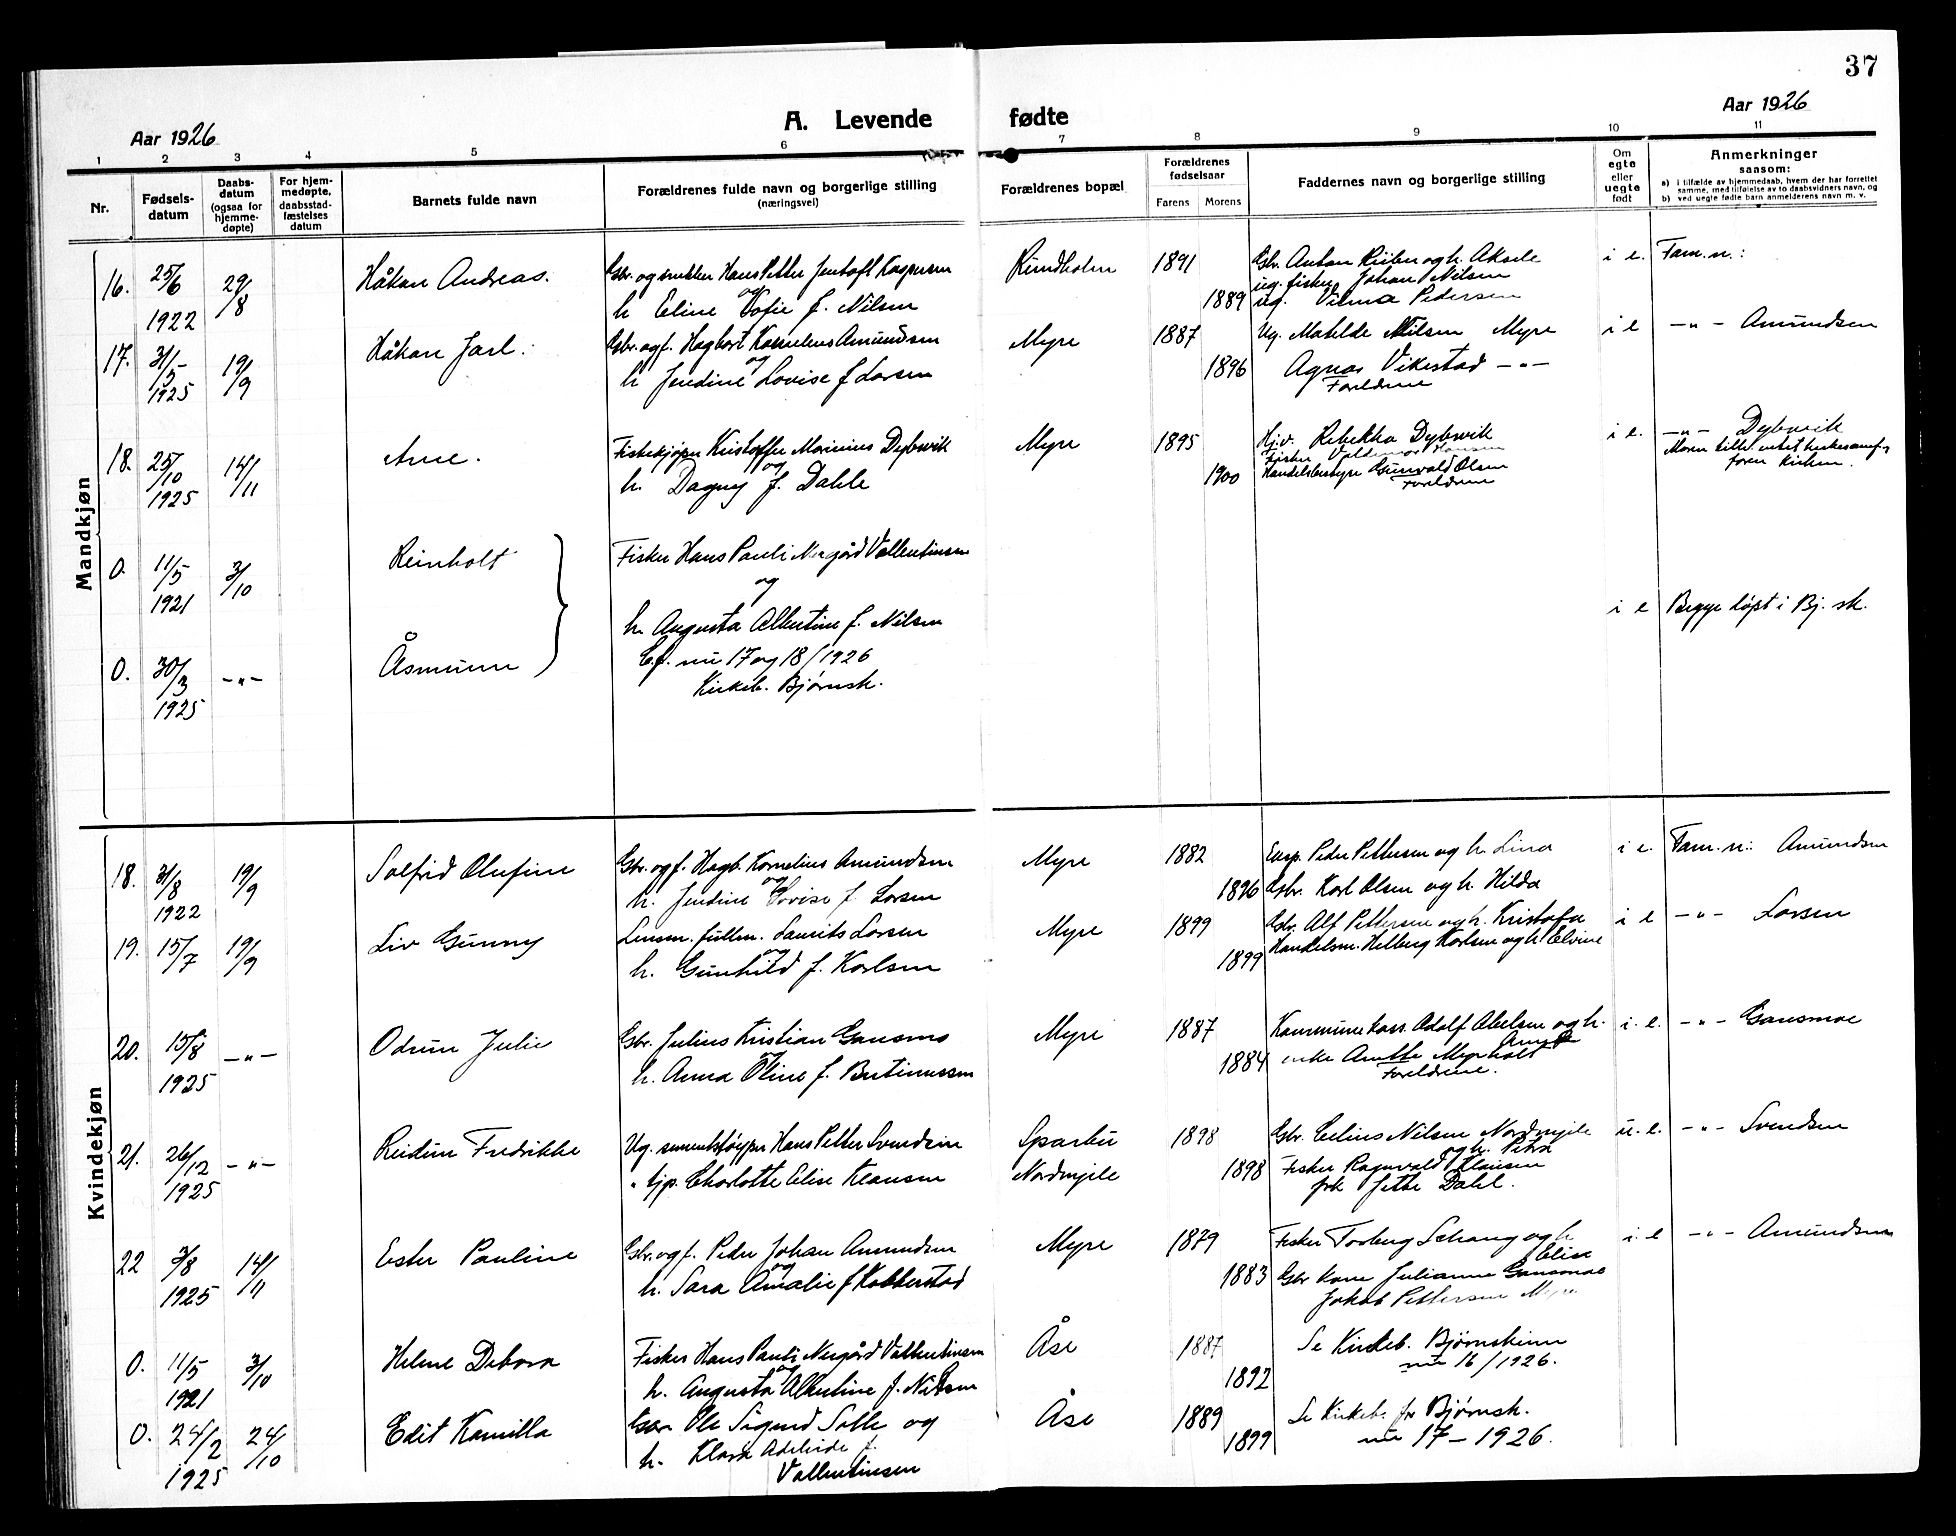 37
Aar 1926
A. Levende fødte
Aar 1926
1 2 3 4 5 6 7 8 9 10 11
Nr.
Fødsels-
datum
Daabs-
datum
(ogsaa for
hjemme-
døpte)
For hjem-
medøpte,
daabsstad-
fæstelses
datum
Barnets fulde navn
Forældrenes fulde navn og borgerlige stilling
(næringsvei)
Forældrenes bopæl
Forældrenes
fødselsaar
Farens Morens
Faddernes navn og borgerlige stilling
Om
egte
eller
uegte
født
Anmerkninger
sansom:
a) i tilfælde av hjemmedaab, hvem der har forrettet
samme, med tilføielse av to daabsvidners navn, og
b) ved uegte fødte barn anmelderens navn m. v.
Mandkjøn
16. 25/6 1922 29/8
Håkan Andreas.
Gbr. og snekker Hans Petter Jentoft Kaspersen
og
h Eline Sofie f. Nilsen
1891
1889
Gbr. Anton Riiber og h. Aksele
ug. fisker Johan Nilsen
ug. Vilma Pedersen
i e.
Fam.n.:
17. 31/5 1925 19/9
Håkan Jarl.
Gbr. og f. Hagbart Kornelius Amundsen
og
h Jendine Lovise f Larsen
Myre
1887
1896
Ug. Matilde Nilsen Myre
Agnas Vikestad -"-
Foreldrene
i e
-"- Amundsen
18. 25/10 1925 14/11
Arne.
Fiskekjøper Kristoffer Marinius Dybwik
og
h. Dagny f. Dahle
Myre
1895
1900
Hjv. Rebekka Dybwik
Fisker Valdemar Hansen
Handelsbestyr Grunvald Olsen
Foreldrene
i e.
-"- Dybwik
Moren tilh. intet
foren Kirken.
0. 11/5 1921 3/10
Reinholt
Fisker Hans Pauli Nergård Vallentinsen
og
h. Augusta Albertine f. Nilsen
i e
Begge døpt i Bj. sk.
0. 30/3 1925 -"-
Åsmunn
Cf. nu 17 og 18/1926
Kirkeb. Bjørnsk.
Kvindekjøn
18. 31/8 1922 19/9
Solfrid Olufine
Gbr. og f. Hagb. Kornelius Amundsen
og
h. Jendine Lovise f. Larsen
Myre
1882
1896
Eksp. Peder Pettersen og h. Lina
Gbr. Karl Olsen og h. Hilda
i e.
Fam.n: Amundsen
19. 15/7 19/9
Liv Gunny
Lensm. fullm. Laurits Larsen
og
h. Gunhild f. Karlsen
Myre
1899
1899
Gbr. Alf Pettersen og h. Kristofa
Handelsm. Helberg Karlsen og h. Elvine
i e
-"- Larsen
20. 15/8 1925 -"-
Odrun Julie
Gbr. Julius Kristian Gansmo
og
h. Anna Oline f. Bertinussen
Myre
1887
1884
Kommunekass. Adolf Abelsen og h.
enke Anette Myrholt
Foreldrene.
i. e.
-"- Gansmoe
21. 26/12 1925 -"-
Reidun Fredrikke
Ug. sementstøyper Hans Petter Svendsen
" tjp. Charlotte Elise Klausen
Sparbu
Nordmjele
1898
1898
Gbr. Celius Nilsen Nordmjele
og h. Petra
Fisker Ragnvald Klausen
frk Jette Dahl.
u. e.
-"- Svendsen
22 3/8 1925 14/11
Ester Pauline
Gbr. og f. Peder Johan Amundsen
og
h. Sara Amalie f Kobberstad
Myre
1879
1883
Fisker Torberg Schang og h
Elise
Gbr kone Julianne Gansmoe
Jakob Pettersen Myre
i. e
-"- Amundsen
0. 11/5 1921 3/10
Helene Debora
Fisker Hans Pauli Nergård Vallentinsen
og
h. Augusta Albertine f. Nilsen
Åse
1887
1892
Se Kirkeb. Bjørnskinn
nu 16/1926.
0. 24/2 1925 24/10
Edit Kamilla
Gbr. Ole Sigurd Solli og
h. Klara Adeleide f.
Vallentinsen
Åse
1889
1899
Se Kirkeb. for Bjørnsk.
nu 17 – 1926.